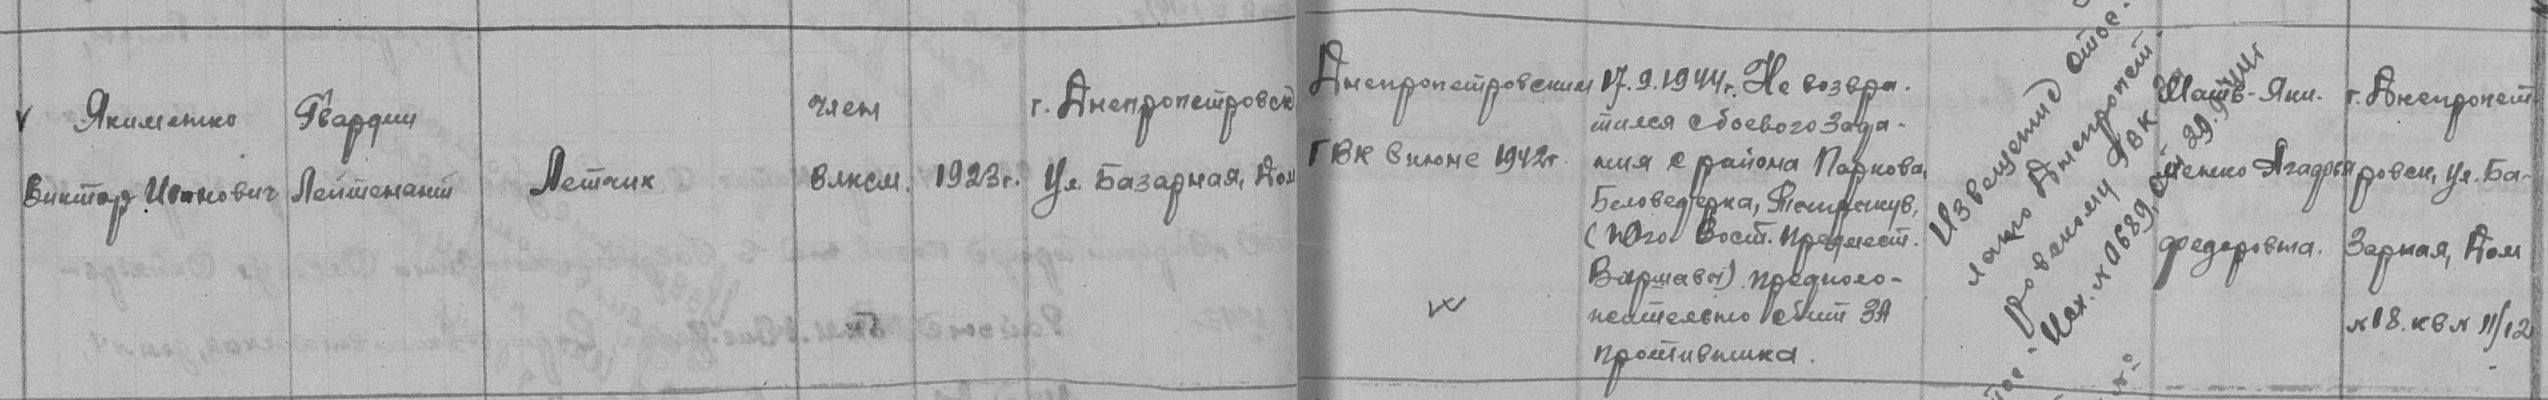 Якименко
Виктор Иванович
Гвардии
Лейтенант
Летчик
член
влксм.
1923г.
г. Днепропетровск
ул. Базарная, Дом
Днепропетровским
ГВК в июне 1942г.
17.9.1944г. Не возвра-
тился с боевого зада-
ния с района Паркова,
Беловедерка,
(Юго Вост. предмест.
Варшавы) предполо-
жительно сбит ЗА
противника.
Извещение
лано Днепропет-
ровскому ГВК за
Исх. № 0689, от 29.9.44г
Мать-Яки-
менко Агафья
федоровна.
г. Днепропет
ровск, ул. Ба-
зарная, Дом
№18. кв № 11/12